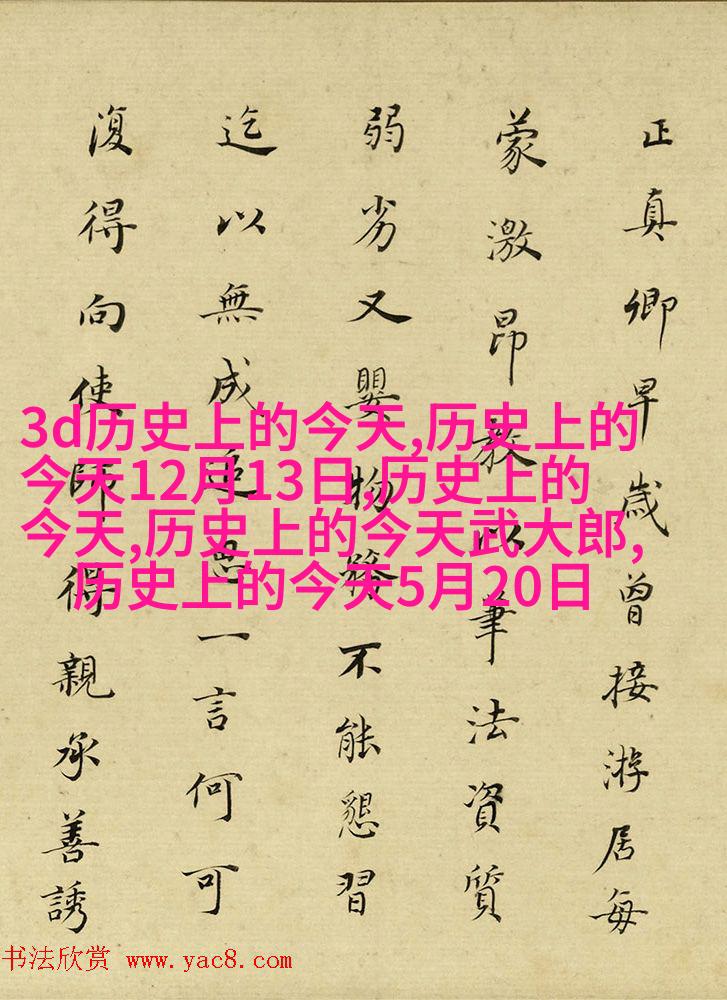 正真卿早歲曾接游居每
蒙激昂教以筆法資質
弱劣又嬰物務不能懇習
迄以無成追思一言何可
復得向使師得親承善誘
3d历史上的今天,历史上的
今天12月13日,历史上的
今天,历史上的今天武大郎,
历史上的今天5月20日
书法欣赏 www.yac8.com